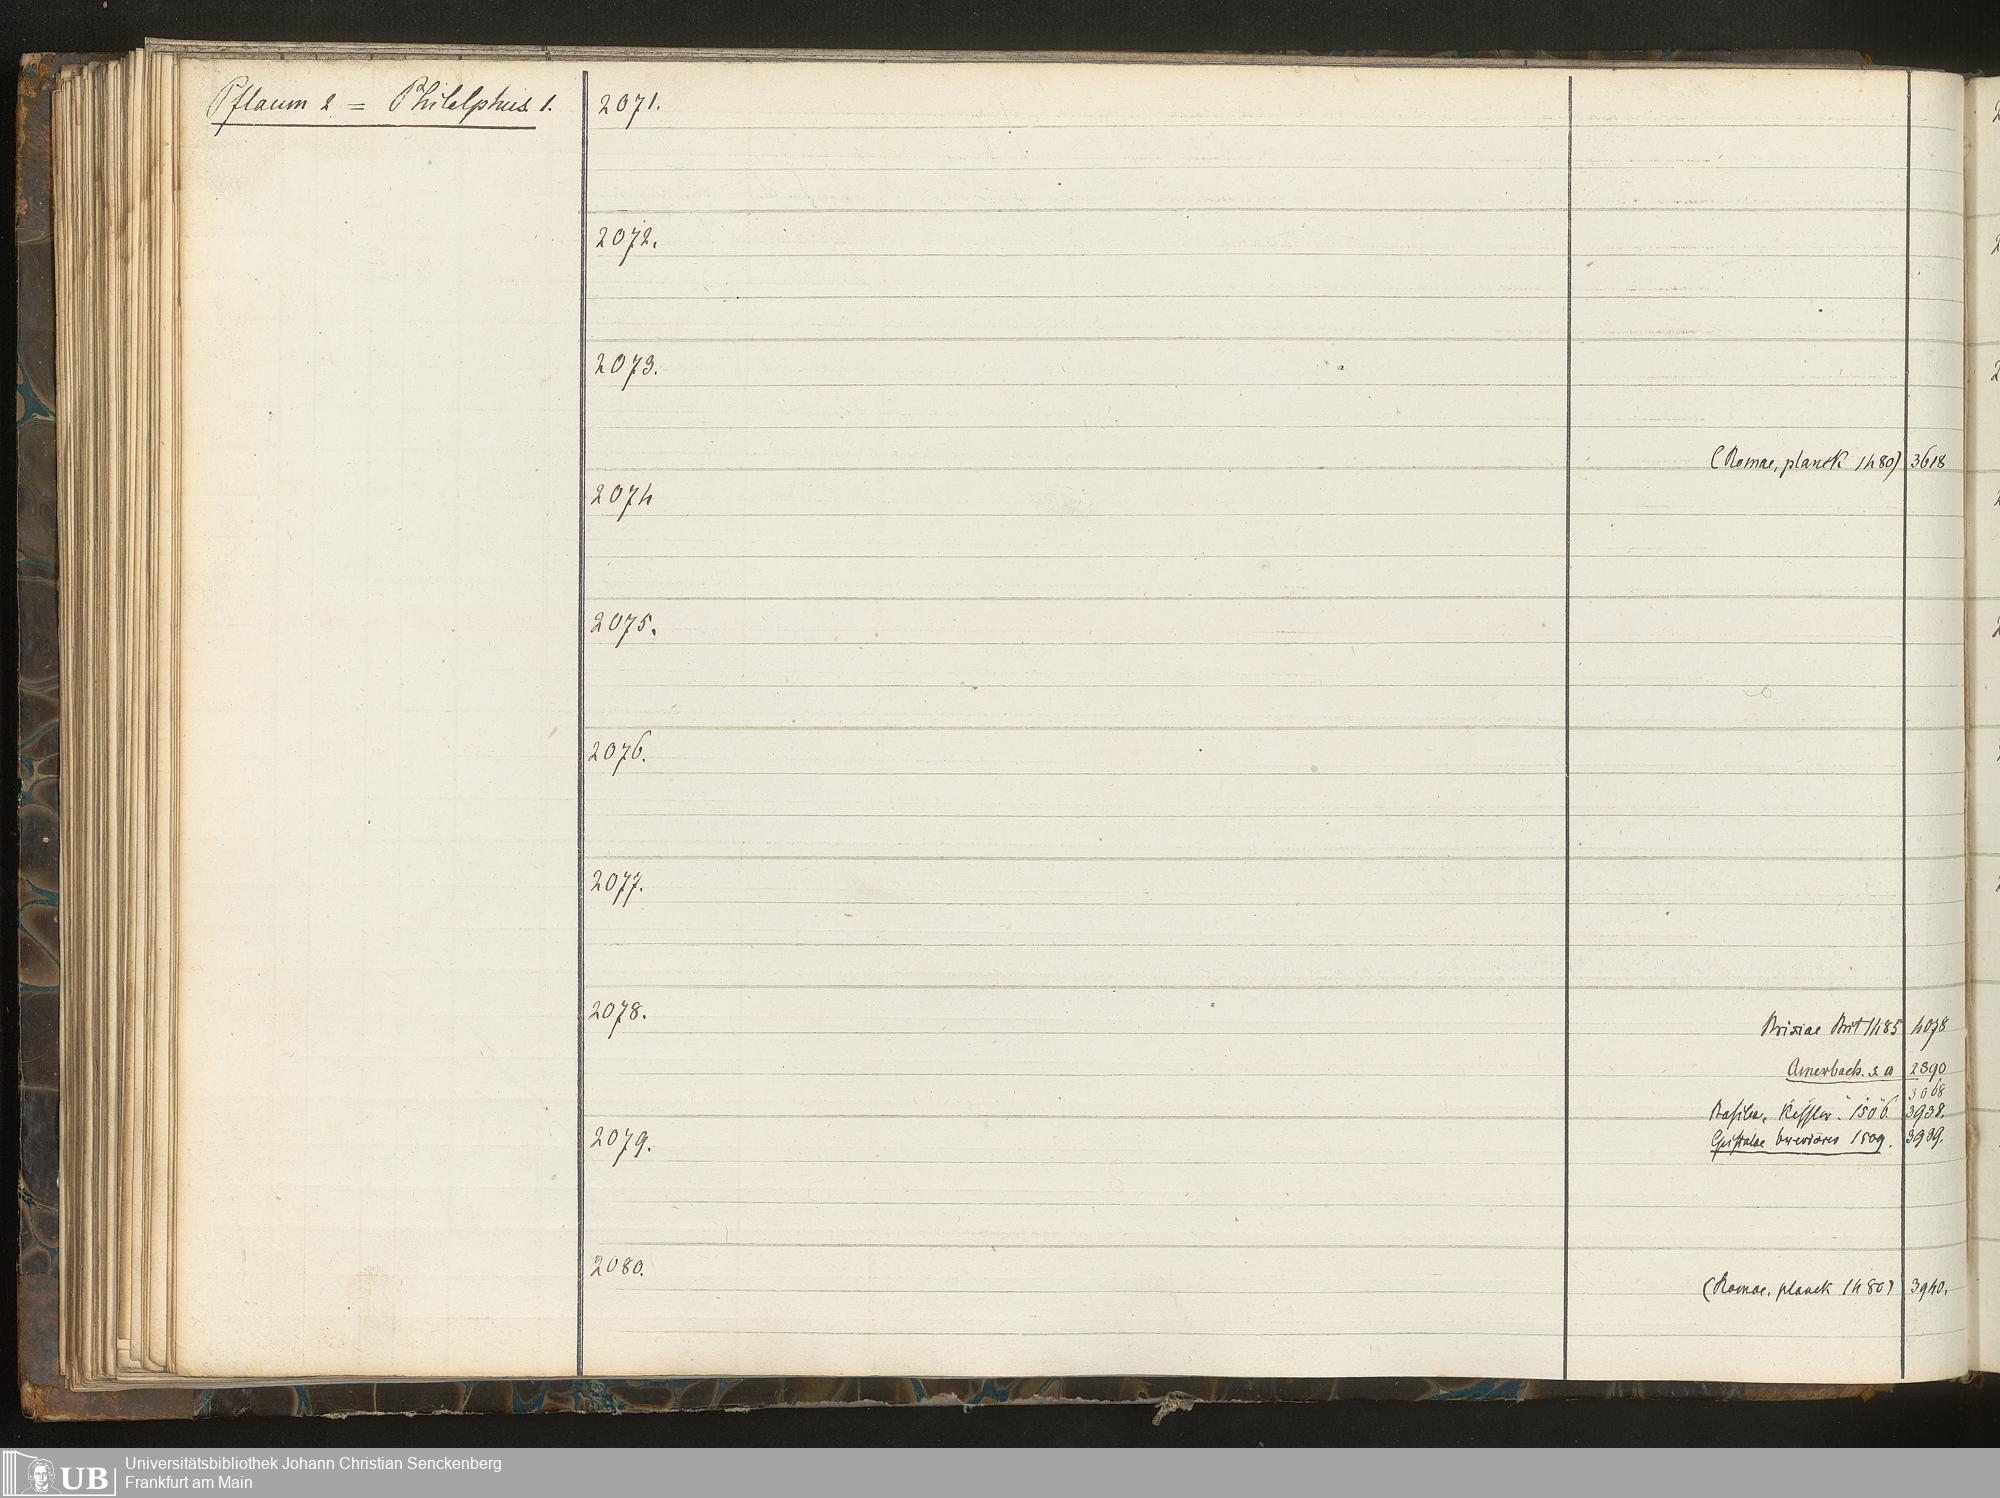 Pflaum 2 = Philelphus 1.
2071.
2072.
2073.
(Romae, planck 1480) 3618
2074
2075.
2076.
2077.
2078.
Brixiae Brit 1485 4078
Amerbach. s a 2390
3068
Basilea, Kessler. 1506. 3938.
2079.
Epistolae breviores 1509. 3939.
2080.
(Romae. planck 1480) 3940.
UB
Universitätsbibliothek Johann Christian Senckenberg
Frankfurt am Main